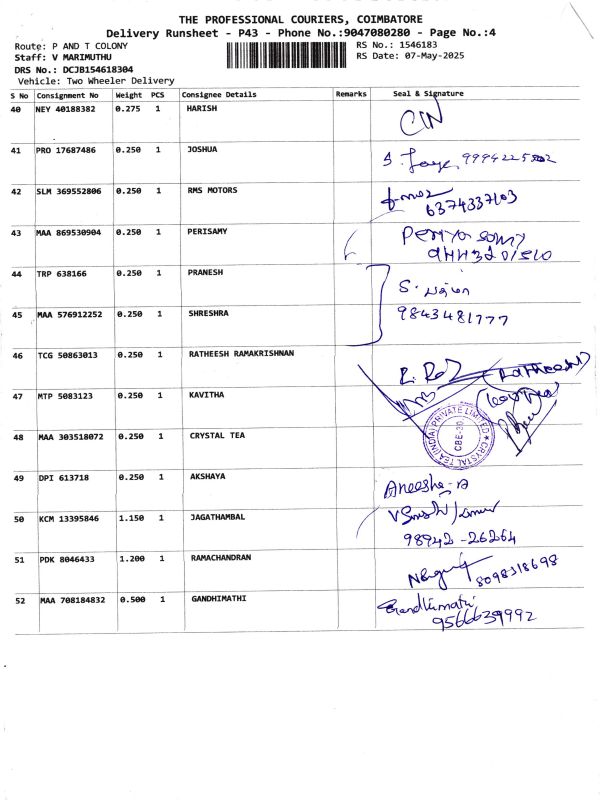 THE PROFESSIONAL COURIERS, COIMBATORE
Delivery Runsheet - P43 - Phone No.:9047080280 - Page No.:4
Route: P AND T COLONY RS No.: 1546183
Staff: V MARIMUTHU RS Date: 07-May-2025
DRS No.: DCJB154618304
Vehicle: Two Wheeler Delivery
S No Consignment No Weight PCS Consignee Details Remarks Seal & Signature
40 NEY 40188382 0.275 1 HARISH
41 PRO 17687486 0.250 1 JOSHUA
42 SLM 369552806 0.250 1 RMS MOTORS
6374337103
43 MAA 869530904 0.250 1 PERISAMY
44 TRP 638166 0.250 1 PRANESH
45 MAA 576912252 0.250 1 SHRESHRA
9843481777
46 TCG 50863013 0.250 1 RATHEESH RAMAKRISHNAN
47 MTP 5083123 0.250 1 KAVITHA
48 MAA 303518072 0.250 1 CRYSTAL TEA
CRYSTAL TEA (INDIA) PRIVATE LIMITED
CBE-30
49 DPI 613718 0.250 1 AKSHAYA Aneesha
50 KCM 13395846 1.150 1 JAGATHAMBAL
98942-26264
51 PDK 8046433 1.200 1 RAMACHANDRAN
8098318698
52 MAA 708184832 0.500 1 GANDHIMATHI Gandhimathi
9566639992